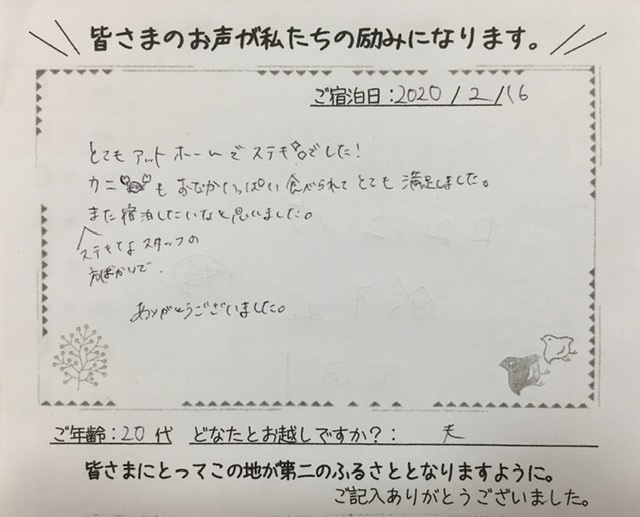 皆さまのお声が私たちの励みになります。
ご宿泊日:2020/2/16
とてもアットホームでステキでした!
カニもおなかいっぱい食べられてとても満足しました。
また宿泊したいなと思いました。
ステキなスタッフの
方ばかりで、
ありがとうございました。
ご年齢:20代 どなたとお越しですか?: 夫
皆さまにとってこの地が第二のふるさととなりますように。
ご記入ありがとうございました。